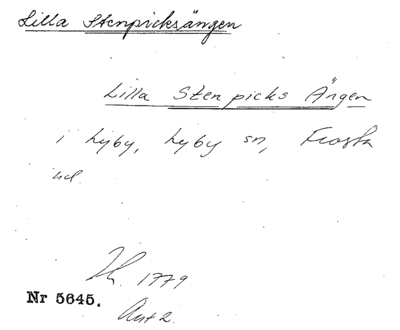 Lilla Stenpicksängen
Lilla Stenpicks Ängen
i Lyby, Lyby sn, Frosta
hd.
1779
Nr 5645.
Akt 2.